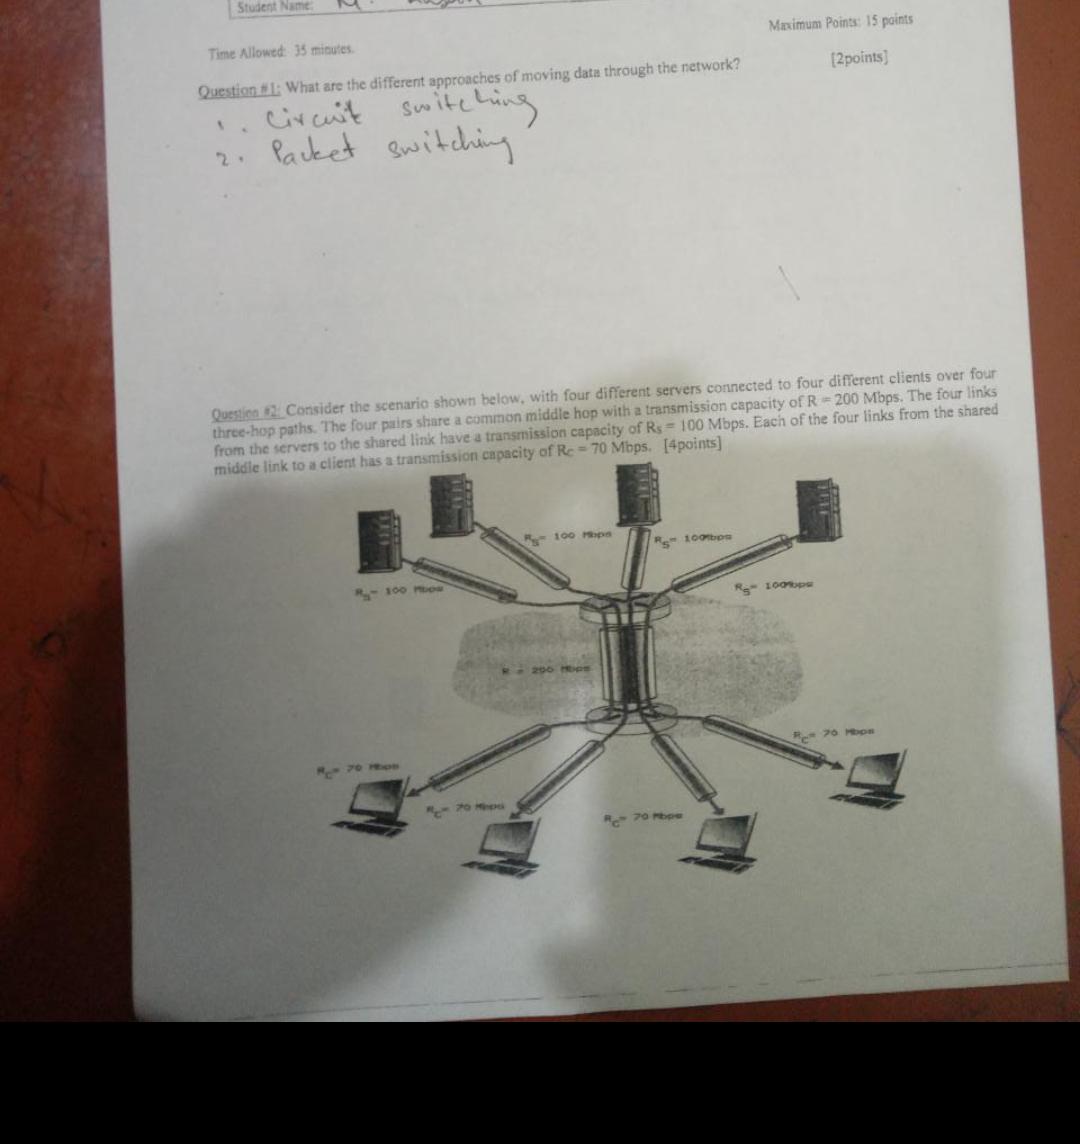 Student Name: M.
Maximum Points: 15 points
Time Allowed: 35 minutes.
Question #1: What are the different approaches of moving data through the network?
[2points]
1. Circuit switching
2. Packet switching
Question #2: Consider the scenario shown below, with four different servers connected to four different clients over four
three-hop paths. The four pairs share a common middle hop with a transmission capacity of R = 200 Mbps. The four links
from the servers to the shared link have a transmission capacity of RS = 100 Mbps. Each of the four links from the shared
middle link to a client has a transmission capacity of RC = 70 Mbps. [4points]
RS= 100 Mbps
RS= 100Mbps
RS= 100 Mbps
RS= 100Mbps
R = 200 Mbps
RC= 70 Mbps
RC= 70 Mbps
RC= 70 Mbps
RC= 70 Mbps